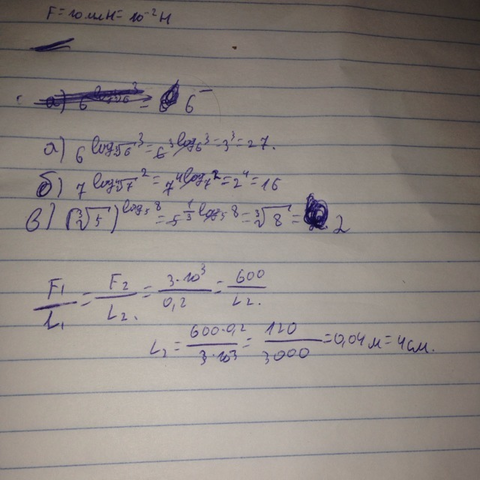 F = 10 мН = 10⁻² Н
а) 6^log₅₆3 = 6
а) 6^log₅₆3 = 6^3log₆3 = 3³ = 27.
б) 7^log₅₇2 = 7^4log₇2 = 2⁴ = 16
в) (∛5)^log₅8 = 5^⅓log₅8 = ∛8 = 2
F₁/L₁ = F₂/L₂. = 3·10³/0,2 = 600/L₂.
L₂ = 600·0,2/3·10³ = 120/3000 = 0,04 м = 4 см.